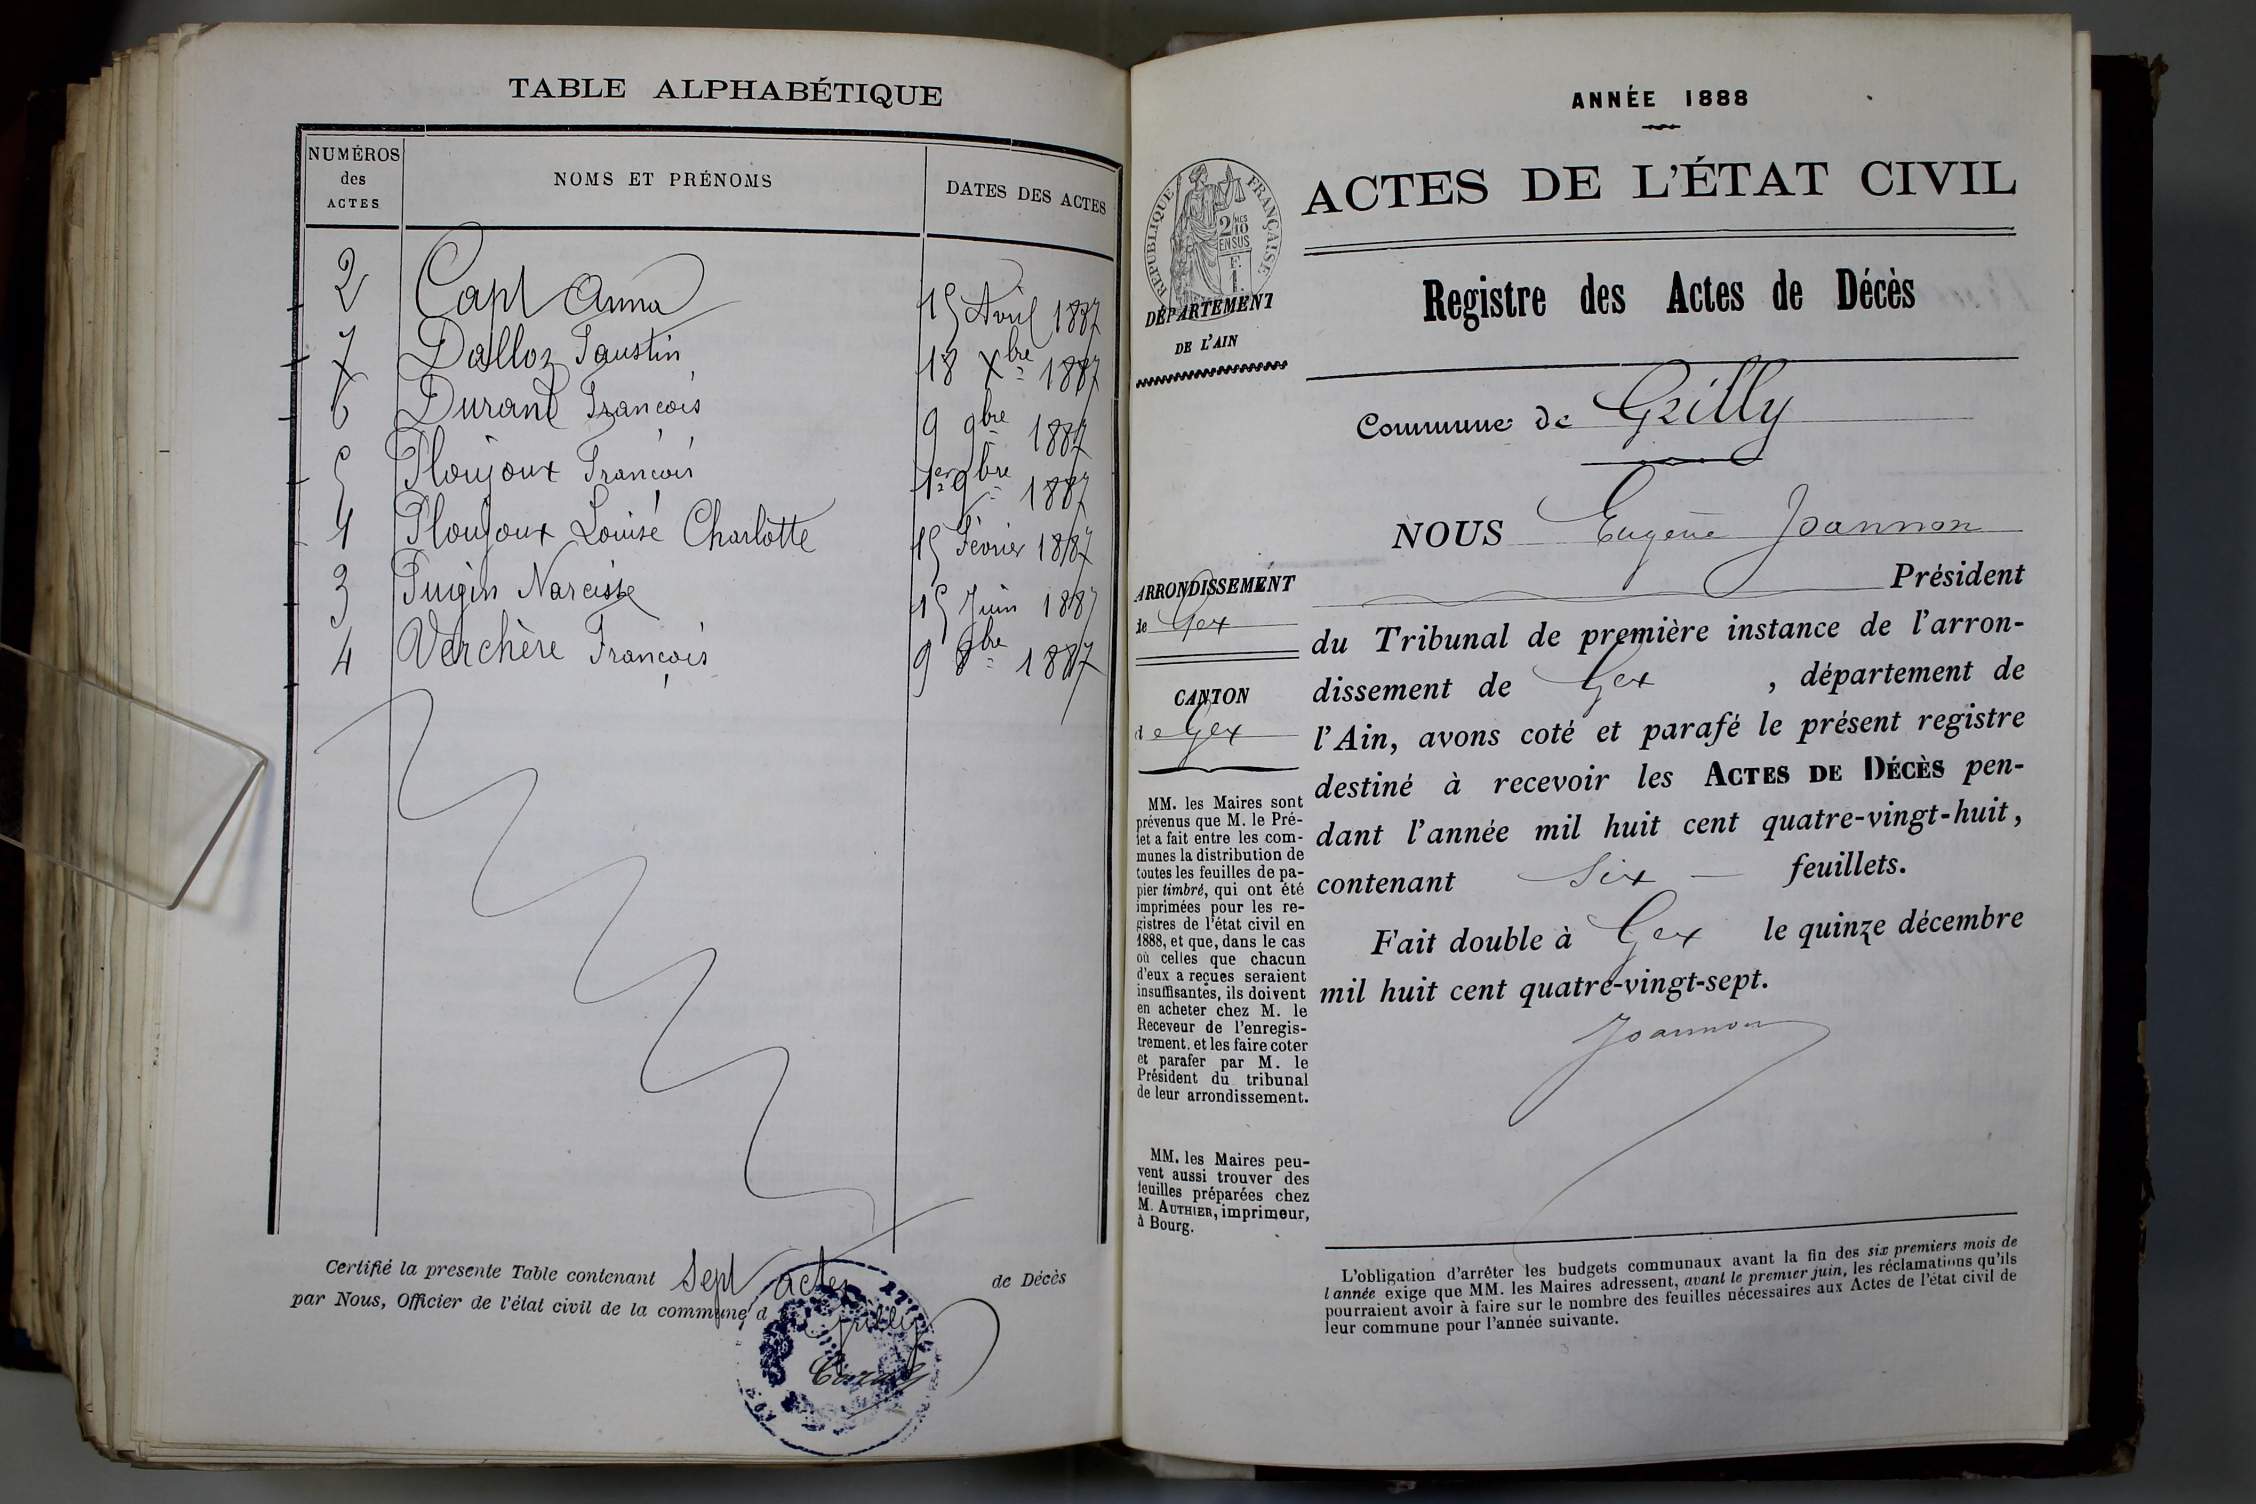 TABLE ALPHABÉTIQUE
NUMÉROS des ACTES
NOMS ET PRÉNOMS
DATES DES ACTES
2 Capt Anna 15 Avril 1887
7 Dalloz Faustin 18 Xbre 1887
6 Durand François 9 9bre 1887
5 Ploujoux François 1er 9bre 1887
1 Ploujoux Louise Charlotte 15 Février 1887
3 Pugin Narcisse 15 Juin 1887
4 Verchère François 9 8bre 1887
Certifié la presente Table contenant sept actes de Décès
par Nous, Officier de l'état civil de la commune d Grilly
ANNÉE 1888
ACTES DE L'ÉTAT CIVIL
RÉPUBLIQUE FRANÇAISE
2/10
EN SUS
F.
1.
DÉPARTEMENT
DE L'AIN
Registre des Actes de Décès
Commune de Grilly
NOUS Eugène Joannon
Président
ARRONDISSEMENT
de Gex
CANTON
de Gex
du Tribunal de première instance de l'arron-
dissement de Gex, département de
l'Ain, avons coté et parafé le présent registre
destiné à recevoir les ACTES DE DÉCÈS pen-
dant l'année mil huit cent quatre-vingt-huit,
contenant six feuillets.
Fait double à Gex le quinze décembre
mil huit cent quatre-vingt-sept.
Joannon
MM. les Maires sont
prévenus que M. le Pré-
fet a fait entre les com-
munes la distribution de
toutes les feuilles de pa-
pier timbré, qui ont été
imprimées pour les re-
gistres de l'état civil en
1888, et que, dans le cas
où celles que chacun
d'eux a reçues seraient
insuffisantes, ils doivent
en acheter chez M. le
Receveur de l'enregis-
trement. et les faire coter
et parafer par M. le
Président du tribunal
de leur arrondissement.
MM. les Maires peu-
vent aussi trouver des
feuilles préparées chez
M. AUTHIER, imprimeur,
à Bourg.
L'obligation d'arrêter les budgets communaux avant la fin des six premiers mois de
l'année exige que MM. les Maires adressent, avant le premier juin, les réclamations qu'ils
pourraient avoir à faire sur le nombre des feuilles nécessaires aux Actes de l'état civil de
leur commune pour l'année suivante.